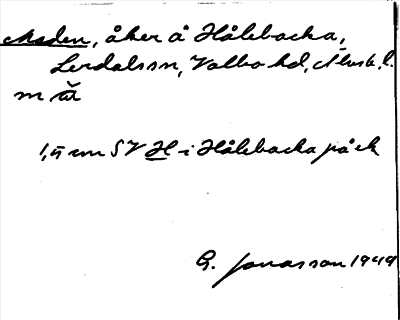 Maden, åker å Hålebacka,
Lerdalssn, Valbo hd, Älvsb. l.
m
1,5 cm SV H i Hålebacka på ek
G. Jonasson 1949